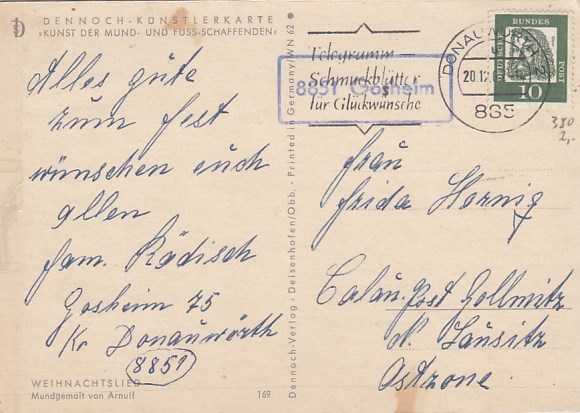 DENNOCH-KÜNSTLERKARTE
»KUNST DER MUND- UND FUSS-SCHAFFENDEN«
Alles gute
zum fest
wünschen euch
allen
fam. Rädisch
Gosheim 75
Kr Donauwörth
8851
WEIHNACHTSLIED
Mundgemalt von Arnulf
169
Dennoch-Verlag · Deisenhofen/Obb. · Printed in Germany/WN 62
Telegramm
Schmuckblätter
für Glückwünsche
8851 Gosheim
DONAUWÖRTH
20.12.
885
DEUTSCHE
BUNDES
POST
10
350
2,-
frau
frida Hornig
Calau. Post Gollmitz
N. Lausitz
Ostzone